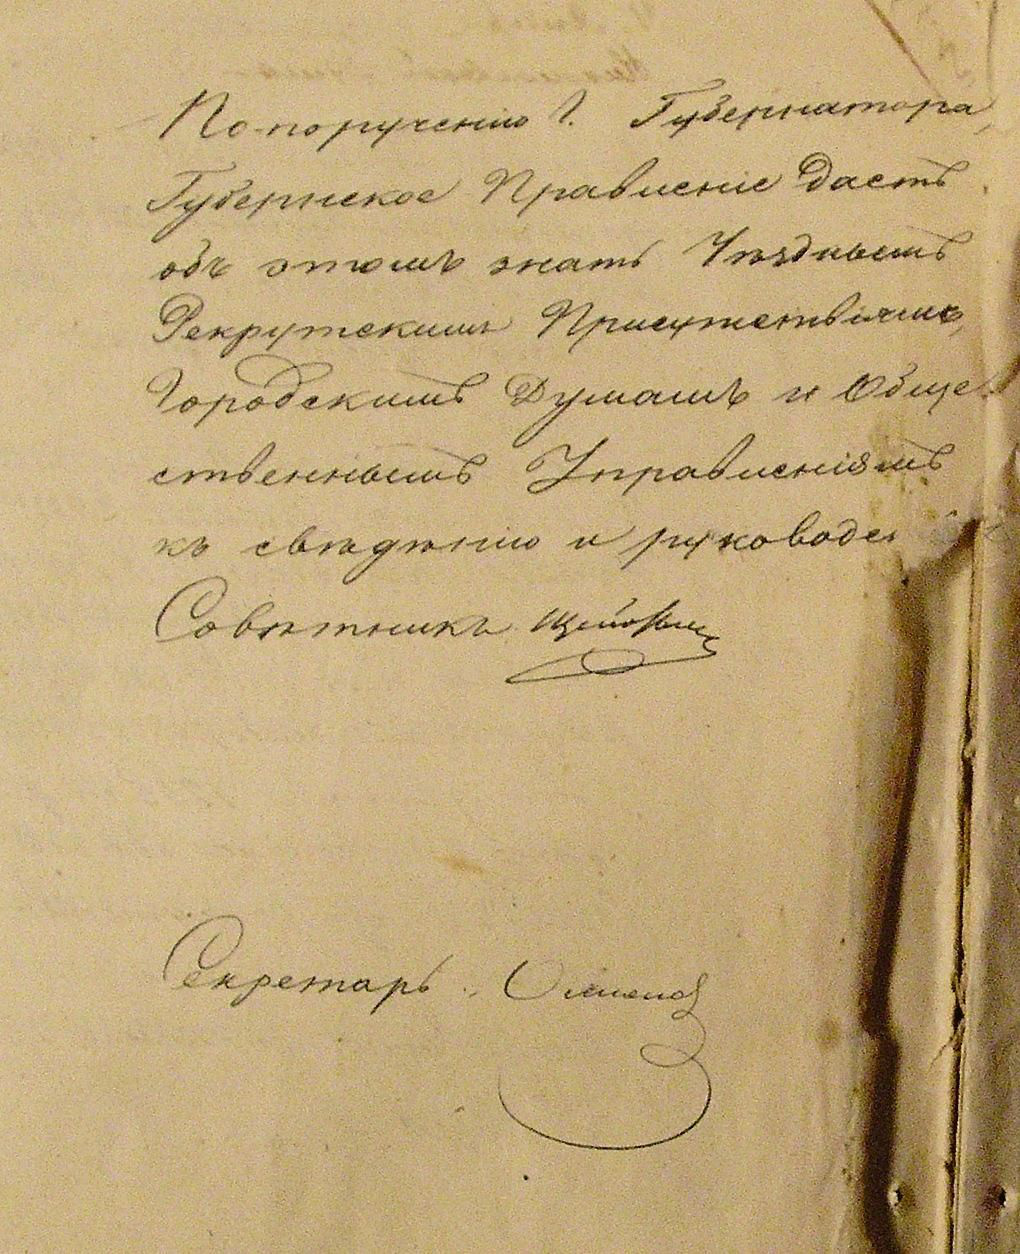 По порученію Г. Губернатора,
Губернское Правленіе даетъ
объ этомъ знать Уѣзднымъ
Рекрутскимъ Присутствіямъ,
Городскимъ Думамъ и Обще-
ственнымъ Управленіямъ
къ свѣдѣнію и
Совѣтникъ
Секретарь